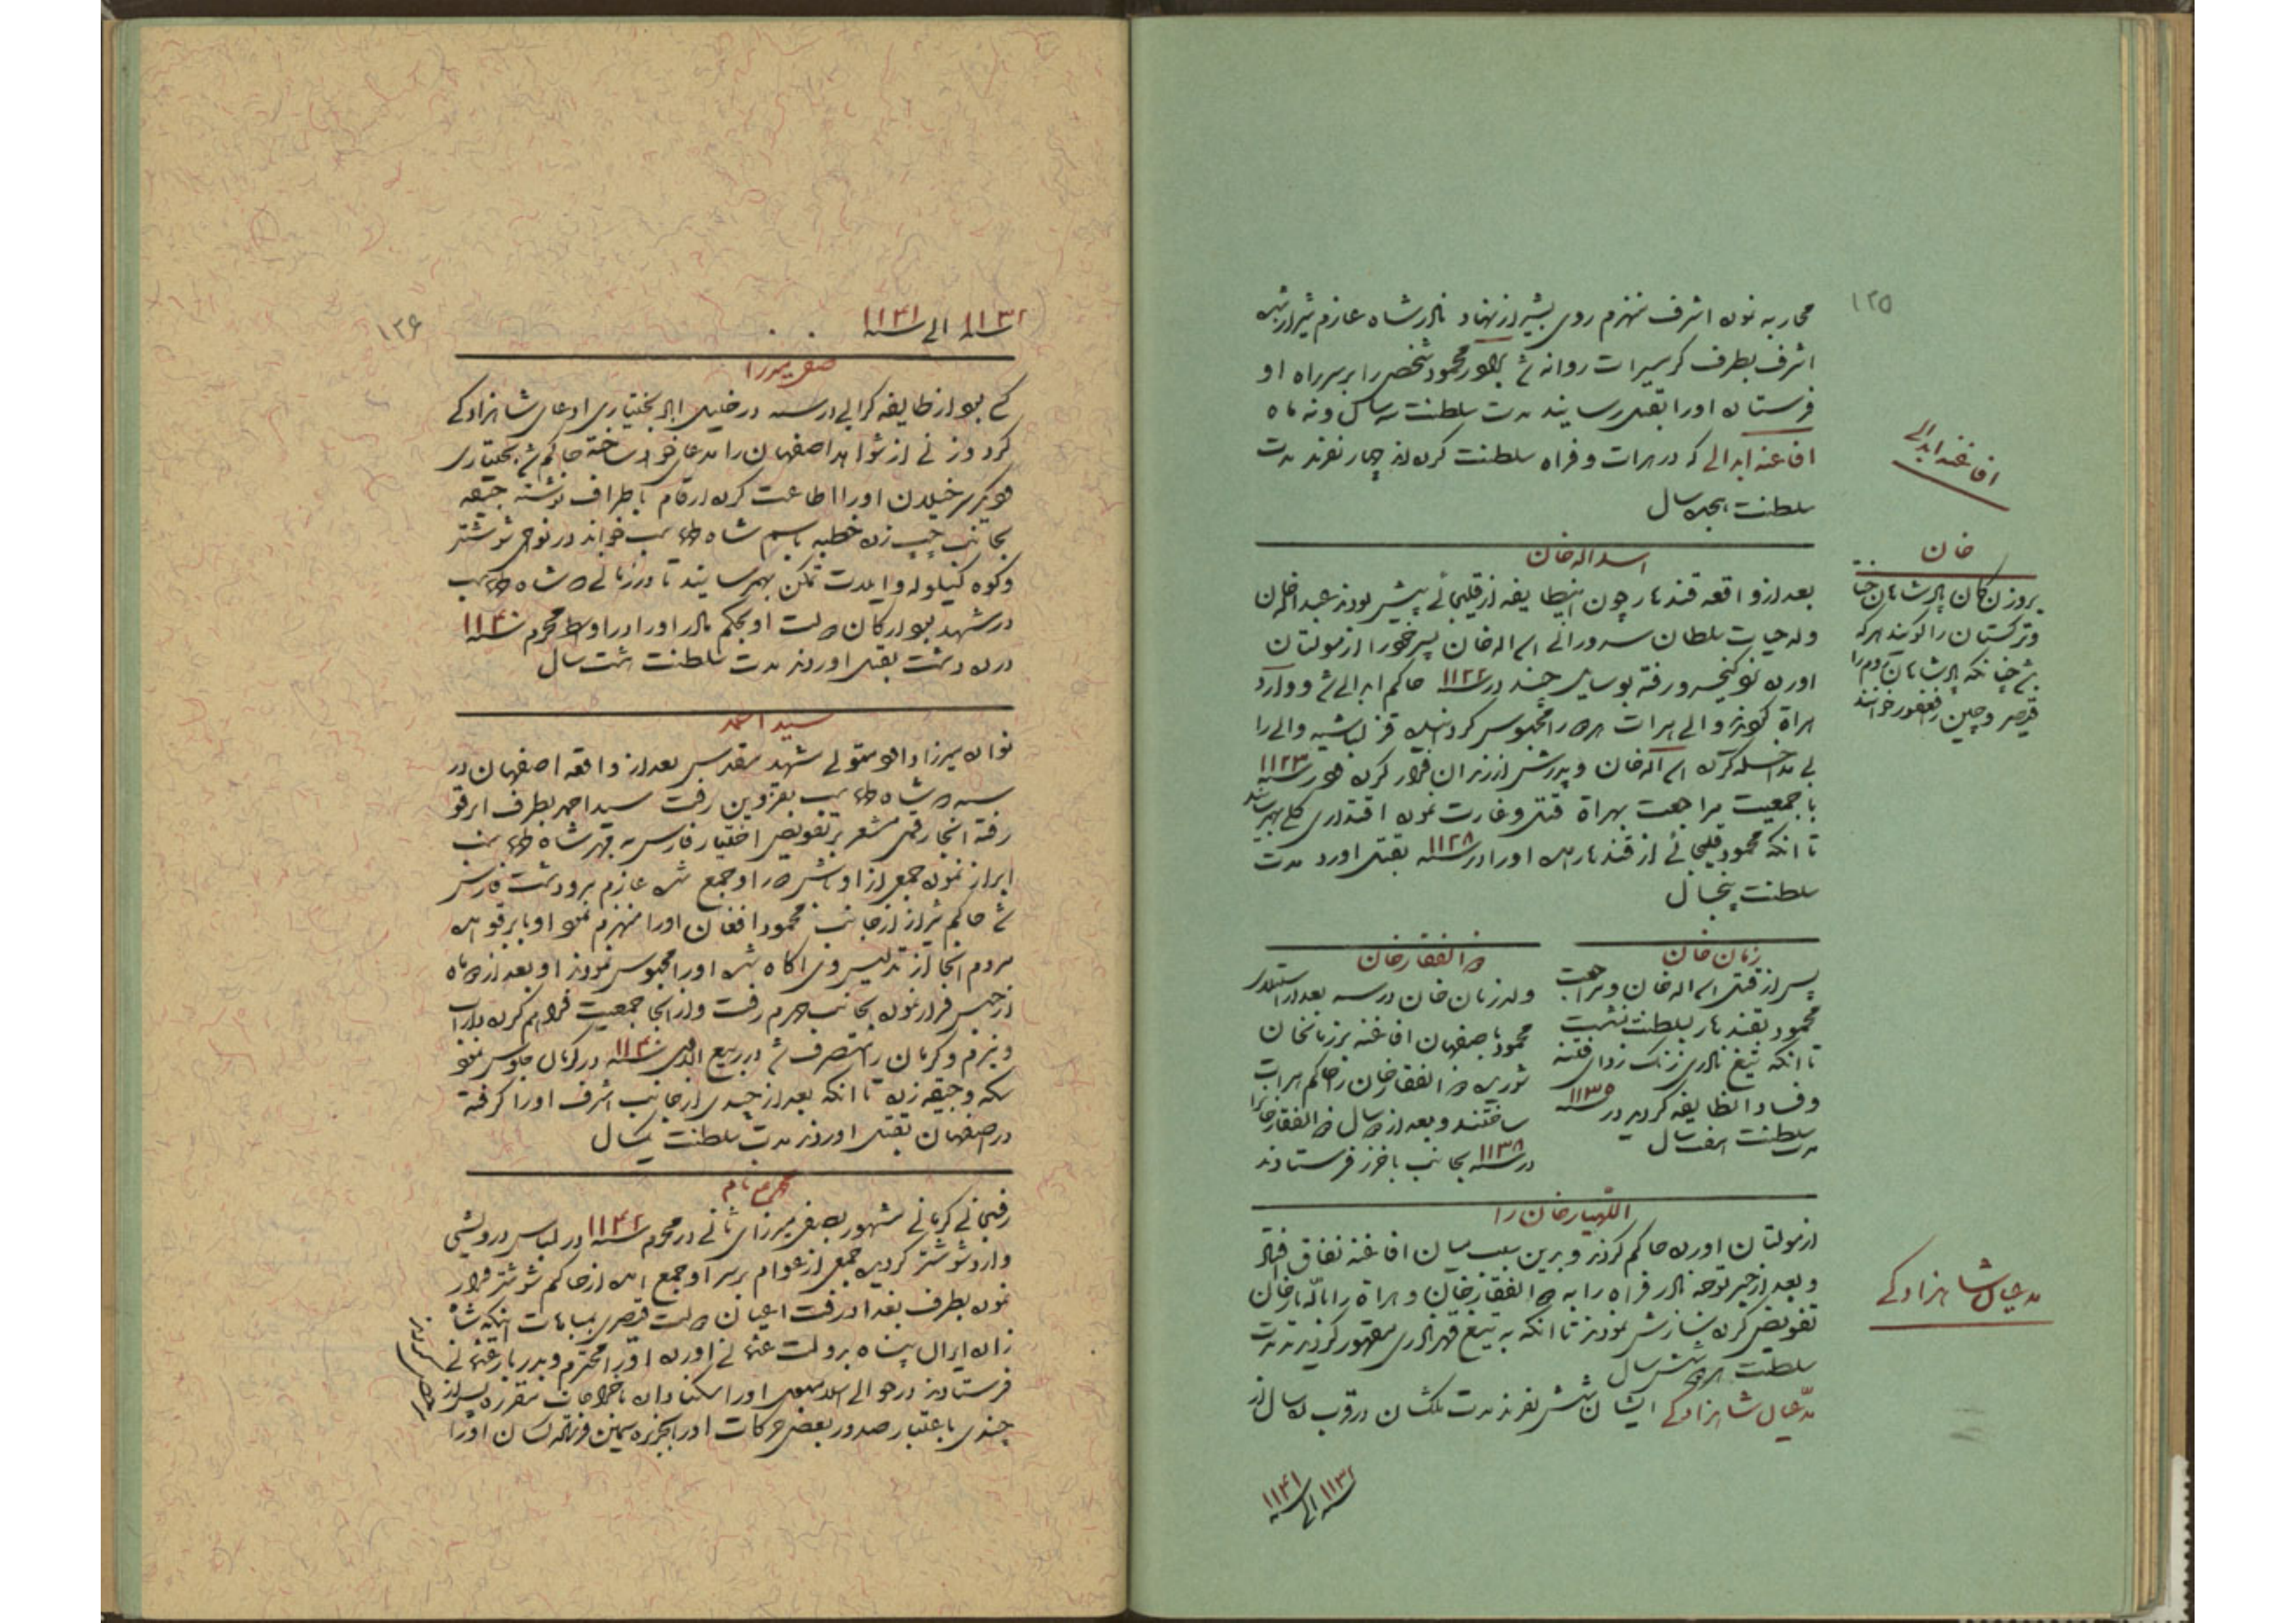 ۱۲۵
محاربه نموده اشرف منهزم روی بشیراز نهاد نادر شاه عازم شیراز شده
اشرف بطرف کرمسیرات روانه شد برادر محمود شخصی را بر سر راه او
فرستاده او را بقتل رسانید مدت سلطنت سه سال و نه ماه
افاغنه ابدالی که در هرات و فراه سلطنت کرده‌اند چهار نفرند مدت
سلطنت هجده سال
افاغنه ابدالی
خان
بروزن کان پادشاهان
و ترکستان را کویند هر که
چنانکه پادشاهان روم را
قیصر و چین را فغفور خوانند
اسداله خان
بعد از واقعه قندهار چون اینطایفه از قلیجائی پیش بودند عبداله خان
ولد حیات سلطان سدوزائی اسداله خان پسر خود را از مولتان
آورده نزد کیخسرو رفته بوسایل چند در سنه ۱۱۲۲ حاکم ابدالی شد و وارد
هراة والی هرات هر دو را محبوس کرد قزلباشیه والی را
بی مداخله کرده اسداله خان و پدرش از زندان فرار کرده در سنه ۱۱۲۳
با جمعیت مراجعت بهراة قتل و غارت نموده اقتداری کلی بهم رسانید
تا آنکه محمود قلیجائی از قندهار آمده او را در سنه ۱۱۲۸ بقتل آورد مدت
سلطنت پنجسال
زمان خان
پس از قتل اسداله خان و مراجعت
محمود بقندهار بسلطنت نشست
تا آنکه تیغ نادری زنک زدای فتنه
و فساد انطایفه کردید در سنه ۱۱۳۵
مدت سلطنت هفت سال
ذوالفقار خان
ولد زمان خان در سنه بعد از استیلای
محمود باصفهان افاغنه بر زمانخان
شوریده ذوالفقار خان را حاکم هرات
ساختند و بعد از دو سال ذوالفقار خانرا
در سنه ۱۱۳۸ بجانب باخرز فرستادند
اللهیار خان را
از مولتان آورده حاکم کردند و برین سبب میان افاغنه نفاق افتاد
و بعد از خبر توجه نادر فراه را به ذوالفقار خان و هراة را باللهیار خان
تفویض کرده سازش نمودند تا آنکه به تیغ قهر نادری مقهور کردیدند مدت
سلطنت هر دو شش سال
مدعیان شاهزادکی ایشان شش نفرند مدت ملکشان در قرب ده سال از
مدعیان شاهزادکی
سنه ۱۱۳۲ الی سنه ۱۱۴۱
۱۲۶
سنه ۱۱۳۲ الی سنه ۱۱۴۱
صفی میرزا
که بود از طایفه کرائی در سنه در خلیل‌اباد بختیاری ادعای شاهزادکی
کرد و زنی از شواهد اصفهان را مدعای خود ساخته حاکم بختیاری
و دیکر سرخیلان او را اطاعت کرده ارقام باطراف نوشته جیقه
بجانب چپ زده خطبه باسم شاه طهماسب خواند در نواحی شوشتر
و کوه کیلویه و ایلات تمکن بهم رسانید تا در زمانی که شاه طهماسب
در مشهد بود ارکان دولت او بحکم نادر او را در اواسط محرم سنه ۱۱۴۰
در ده دشت بقتل آوردند مدت سلطنت هشت سال
سید احمد
نواده میرزا داود متولی مشهد مقدس بعد از واقعه اصفهان در
سنه که شاه طهماسب بقزوین رفت سید احمد بطرف ابرقو
رفته آنجا رقمی مشعر بر تفویض اختیار فارس به مهر شاه طهماسب
ابراز نموده جمعی از اوباش در او جمع شده عازم مرودشت فارس
شد حاکم شیراز از جانب محمود افغان او را منهزم نمود او بابرقو آمده
مردم آنجا از تدلیس وی آکاه شده او را محبوس نمودند او بعد از دو ماه
از حبس فرار نموده بجانب جهرم رفت و از آنجا جمعیت فراهم کرده داراب
و نیریز و کرمان را متصرف شد در ربیع الاول سنه ۱۱۴۰ در کرمان جلوس نمود
سکه و جیقه زده تا آنکه بعد از چندی از جانب اشرف او را کرفته
در اصفهان بقتل آوردند مدت سلطنت یکسال
محرم نام
رفسنجانی کرمانی مشهور بصفی میرزای ثانی در محرم سنه ۱۱۴۲ در لباس درویشی
وارد شوشتر کردیده جمعی از عوام بر سر او جمع آمده از حاکم شوشتر فرار
نموده بطرف بغداد رفت اعیان دولت قیصری بمباهات اینکه شاه
زاده ایران پناه بدولت عثمانی آورده او را محترم و بدربار عثمانی
فرستادند در حوالی اسلامبول او را سکنا داده باخراجات مقرره پس از
چندی باعتبار صدور بعضی حرکات او را بجزیره